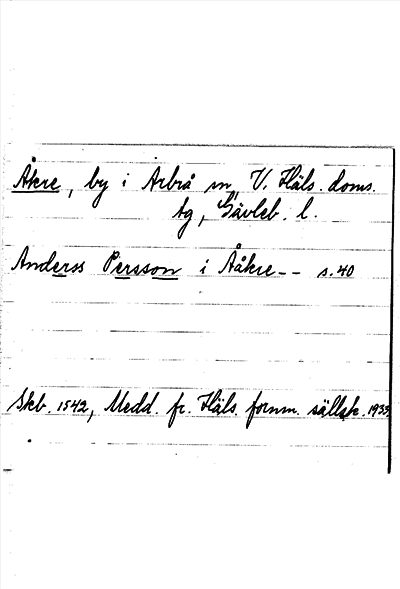 Åkre, by i Arbrå sn, V. Häls. doms.
tg, Gävleb. l.
Anderss Persson i Ååkre-- s. 40
Skb. 1542, Medd. fr. Häls. fornm. sällsk.